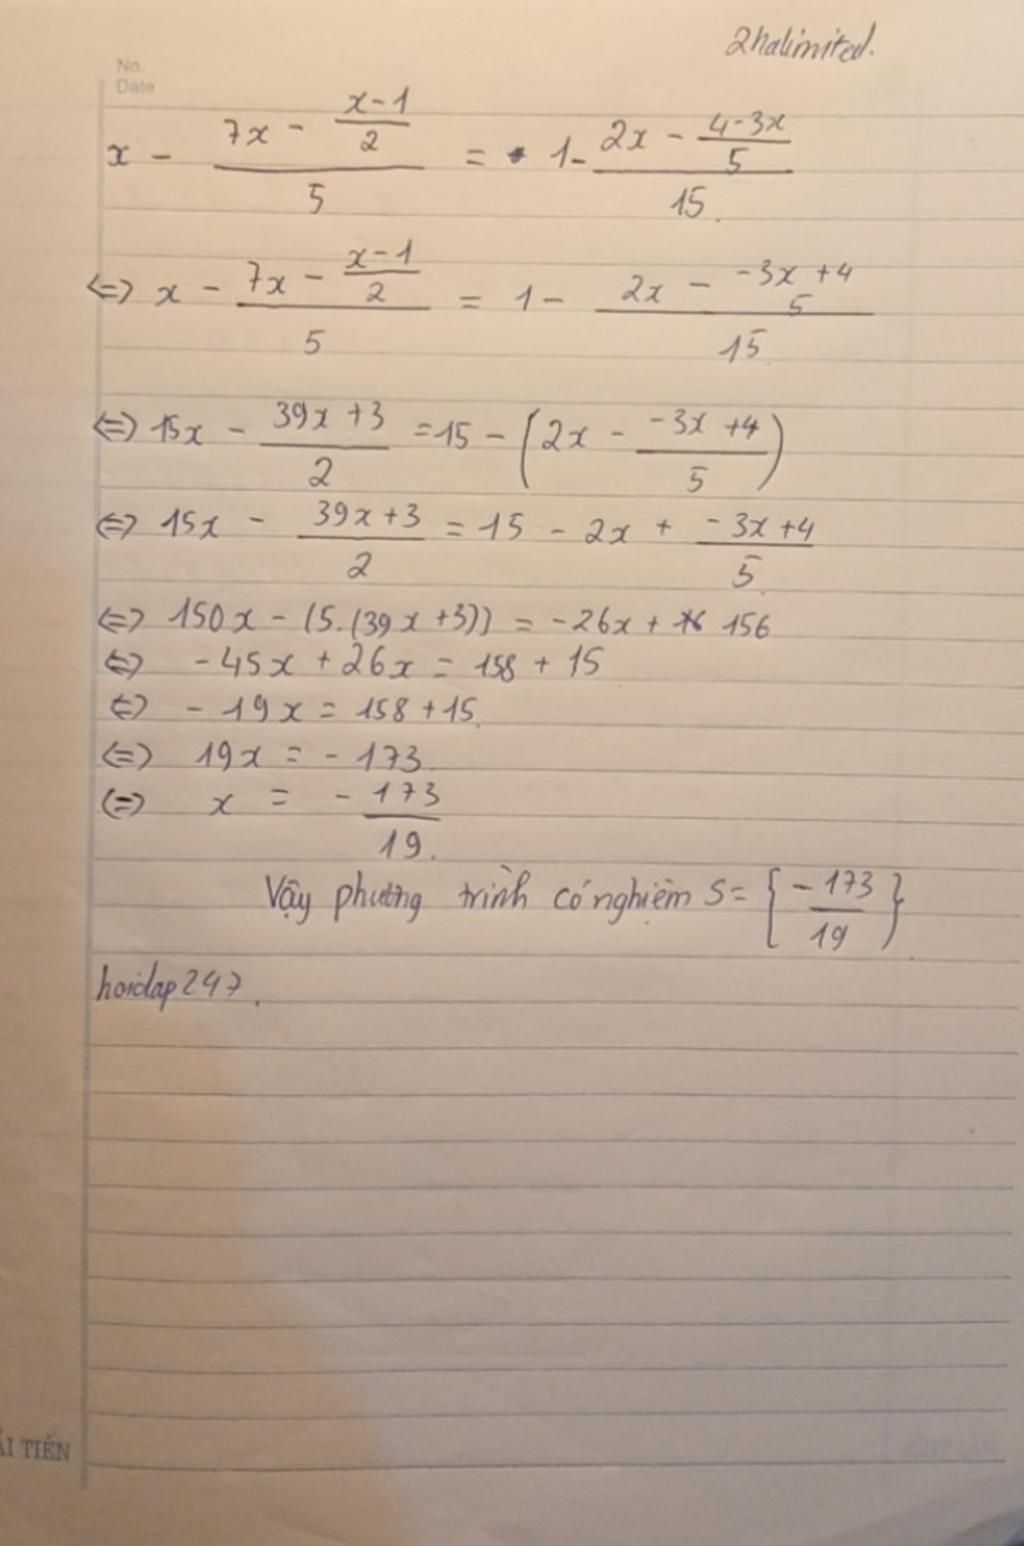 2halimited.
No.
Date
x - (7x - (x-1)/2)/5 = 1 - (2x - (4-3x)/5)/15.
<=> x - (7x - (x-1)/2)/5 = 1 - (2x - (-3x+4)/5)/15.
<=> 15x - (39x+3)/2 = 15 - (2x - (-3x+4)/5)
<=> 15x - (39x+3)/2 = 15 - 2x + (-3x+4)/5.
<=> 150x - (5.(39x+3)) = -26x + 156
<=> -45x + 26x = 158 + 15
<=> -19x = 158+15.
<=> 19x = -173.
<=> x = -173/19.
Vậy phương trình có nghiệm S = {-173/19}.
hoidap247.
ẢI TIẾN